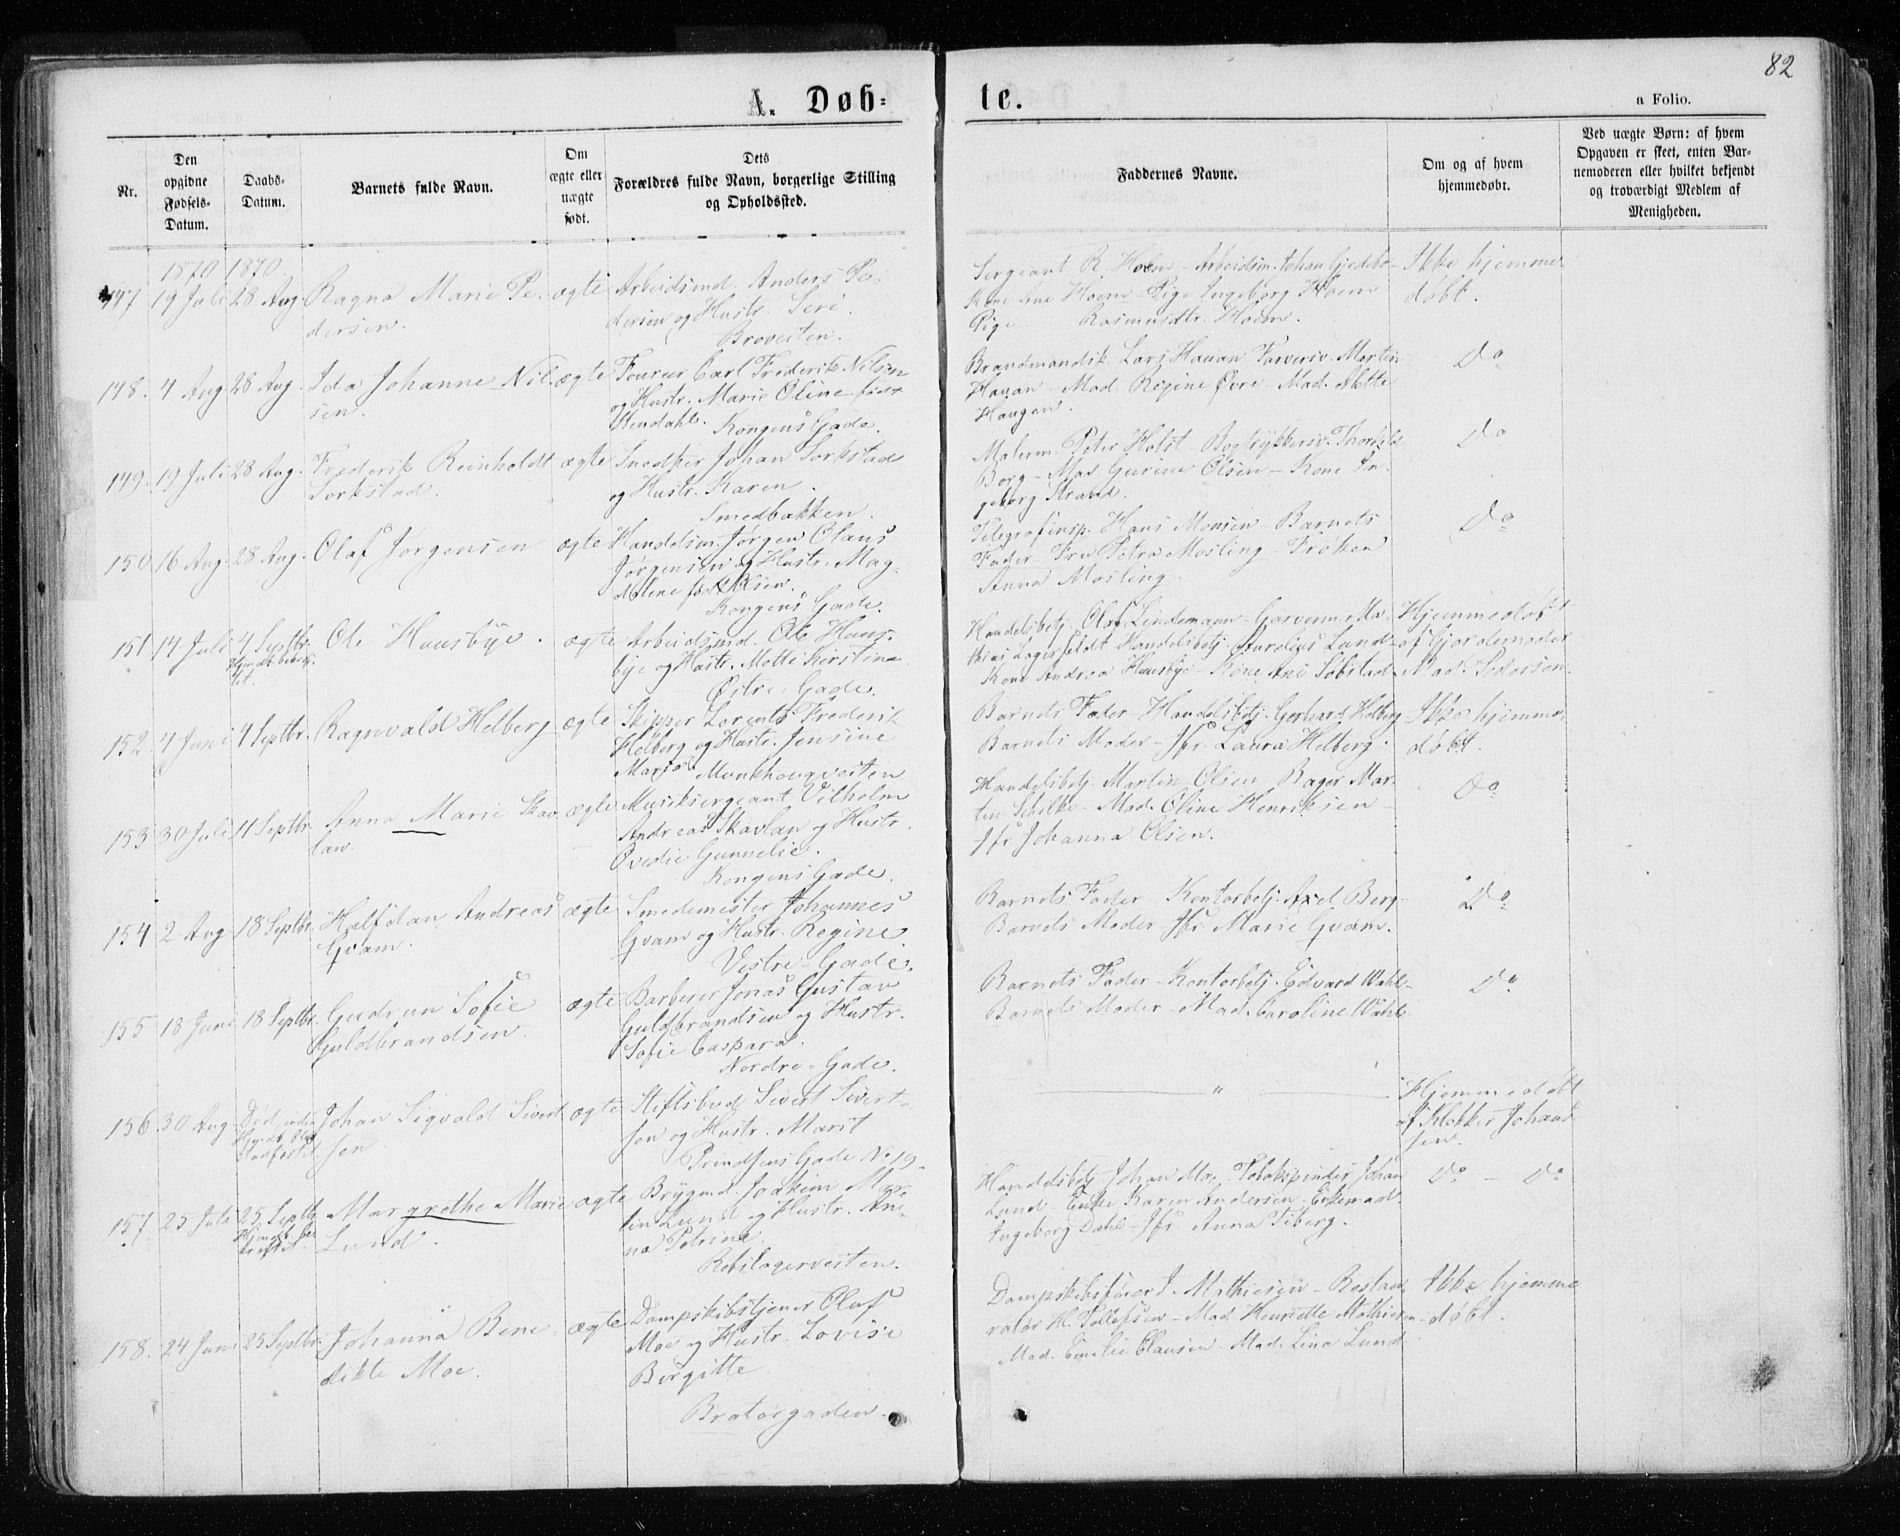 82
A. Døb-
te.
a Folio.
Nr.
Den opgidne Fødsels-Datum.
Daabs-Datum.
Barnets fulde Navn.
Om ægte eller uægte født.
Dets Forældres fulde Navn, borgerlige Stilling og Opholdssted.
Faddernes Navne.
Om og af hvem hjemmedøbt.
Ved uægte Børn: af hvem Opgaven er skeet, enten Barnemoderen eller hvilket bekjendt og troværdigt Medlem af Menigheden.
1870 1870
147 19 Juli 28 Aug Ragna Marie Pe- ægte Arbeidsmd. Anders Pe-
dersen. dersen og Hustr. Seri.
Brovesten.
Sergeant R. Hoem - Arbeidsm. Johan Gjedebo-
Kone Ane Hoem - Pige Ingeborg Hoem
Pige Rasmusdtr. Hoem.
Ikke hjemme
døbt.
148. 4 Aug 28 Aug. Ida Johanne Nil- ægte Fourer Carl Frederik Nilsen
sen. og Hustr. Marie Oline født
Kongens Gade.
Brandmandsk. Lars Hauan Farversv. Martin
Hauan - Mad Regine Øvre Mad. Mette
Haugen.
Do
149. 19 Juli 28 Aug. Frederik Reinholdt ægte Johan Sorkstad
Sorkstad. og Hustr. Karen.
Smedbakken.
Malerm. Peter Holst - Bogtrykkersv. Thorkild
Borg - Mad. Gurine Olsen - Kone In-
geborg Strand.
Do
150 16 Aug 28 Aug. Olaf Jørgensen ægte Handelsm. Jørgen Olaus
Jørgensen og Hustr. Mag-
dalene født Olsen.
Kongens Gade.
Telegrafinsp. Hans Monsen - Barnets
Fader Fru Petra Mosling - Frøken
Anna Mosling.
Do
151 14 Juli 4 Septbr. Ole Huusbye. ægte Arbeidsmd. Ole Huus-
bye og Hustr. Mette Kirstina
Østre Gade.
Handelsbetj. Olaf Lindemann - Garverm. Ma-
thias Lagerfeldt Handelsbetj. Aurelius Lund -
Kone Andrea Huusbye - Kone Ane Solstad
Hjemmedøbt
af Gjordemoder
Mad. Pedersen.
152 4 Juni 4 Septbr. Ragnvald Helberg ægte Skipper Lorents Frederik
Helberg og Hustr. Jensine
Maria. Munkhaugvesten
Barnets Fader - Handelsbetj. Gerhard Helberg
Barnets Moder - Jfr. Laura Helberg.
Ikke hjemme
døbt.
153 30 Juli 11 Septbr. Anna Marie Skav- ægte Musiksergeant Vilhelm
lan. Andreas Skavlan og Hustr.
Ovedie Gunnelie.
Kongens Gade.
Handelsbetj. Martin Olsen Bager Mar-
tin Schelbe - Mad. Oline Henriksen -
Jfr Johanna Olsen.
Do
154 2 Aug 18 Septbr. Halfdan Andreas ægte Smedemester Johannes
Gvam. Gvam og Hustr. Regine.
Vestre Gade.
Barnets Fader - Kontorbetj. Axel Berg -
Barnets Moder - Jfr Marie Gvam.
Do
155 18 Juni 18 Septbr. Gudrun Sofie ægte Barberer Jonas Gustav
Guldbrandsen. Guldbrandsen og Hustr.
Sofie Caspara.
Nordre Gade.
Barnets Fader - Kontorbetj. Edvard Wahl -
Barnets Moder - Mad. Caroline Wahl.
Do
156 30 Aug. Død Johan Sigvald Sivert ægte Stiftsbud Sivert Sivert-
sen sen og Hustr. Marit
Prindsens Gade No 19.
"
Hjemmedøbt
af Klokker Johan
sen.
157 25 Juli 25 Septbr. Margrethe Marie ægte Brygmd. Joakim Mar-
Lund. tin Lund og Hustr. An-
na Petrine.
Rebslagervesten.
Handelsbetj. Johan Moe, Tobakspinder Johan
Lund - Enke Karen Andersen - Enkemad.
Ingeborg Dahl - Jfr Anna Tiberg.
Do - Do
158. 24 Juni 25 Septbr. Johanna Bene- ægte Dampskibstjener Olaf
dikte Moe. Moe og Hustr. Lovise
Birgitte
Bratørgaden.
Dampskibsfører J. Mathiesen - Restau-
ratør H. Tollefsen - Mad. Henriette Mathiesen
Mad. Emilie Clausen - Mad. Lina Lund
Ikke hjemme
døbt.